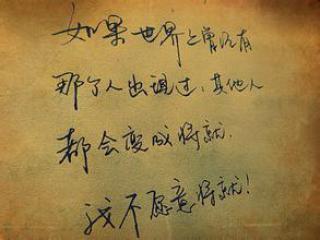 如果世界上曾经有
那个人出现过，其他人
都会变成将就，
我不愿意将就！